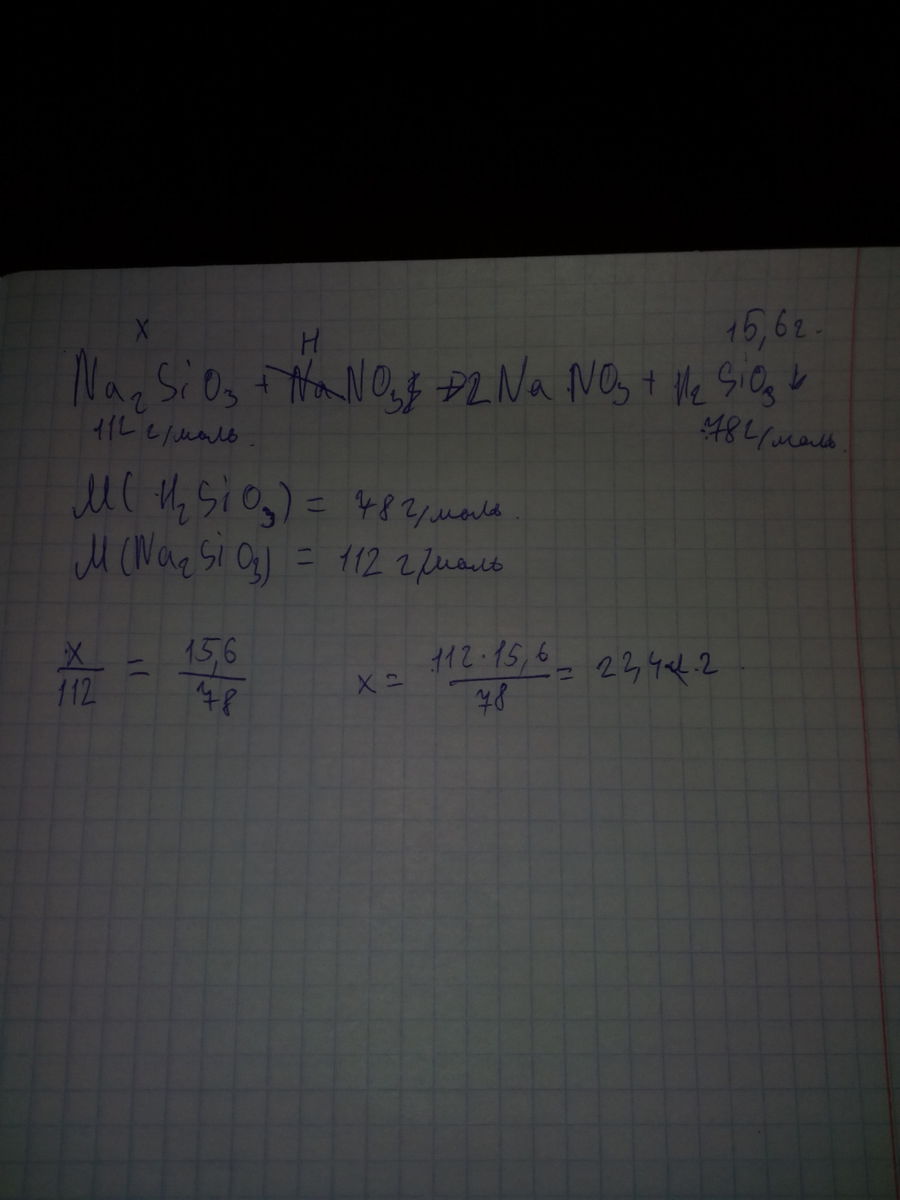 x H 15,6г.
Na₂SiO₃ + NaNO₃ → 2NaNO₃ + H₂SiO₃↓
112 г/моль. 78г/моль.
M(H₂SiO₃) = 78г/моль.
M(Na₂SiO₃) = 112 г/моль
x/112 = 15,6/78 x = 112·15,6/78 = 22,4 г